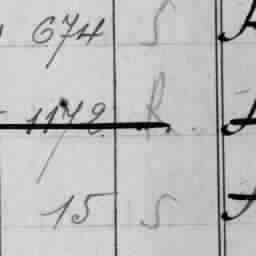 674 S
1172 R.
15 S